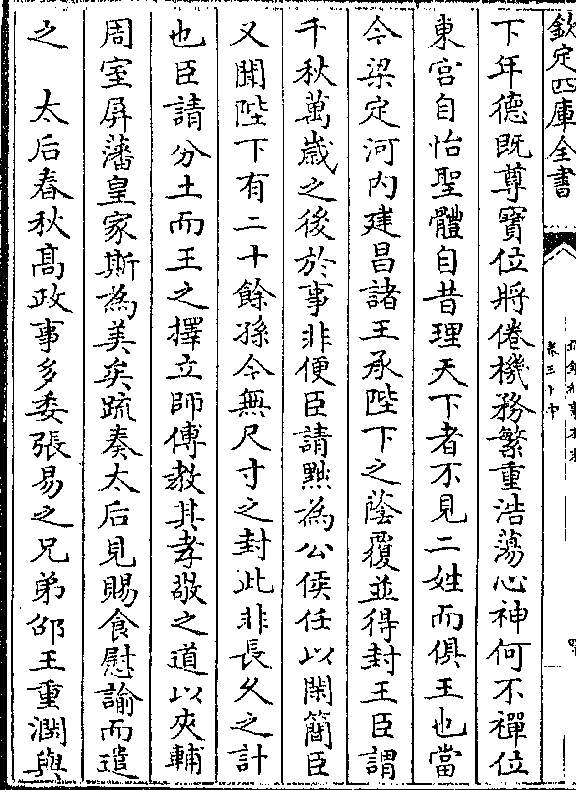 欽定四庫全書
下年德既尊寳位將倦機務繁重浩蕩心神何不禪位
東宫自怡聖體自昔理天下者不見二姓而俱王也當
今梁定河内建昌諸王承陛下之蔭覆並得封王臣謂
千秋萬歲之後於事非便臣請黜為公侯任以閑簡臣
又聞陛下有二十餘孫今無尺寸之封此非長久之計
也臣請分土而王之擇立師傅教其孝敬之道以夾輔
周室屏藩皇家斯為美矣疏奏太后見賜食慰諭而遣
之　太后春秋髙政事多委張易之兄弟邵王重潤與